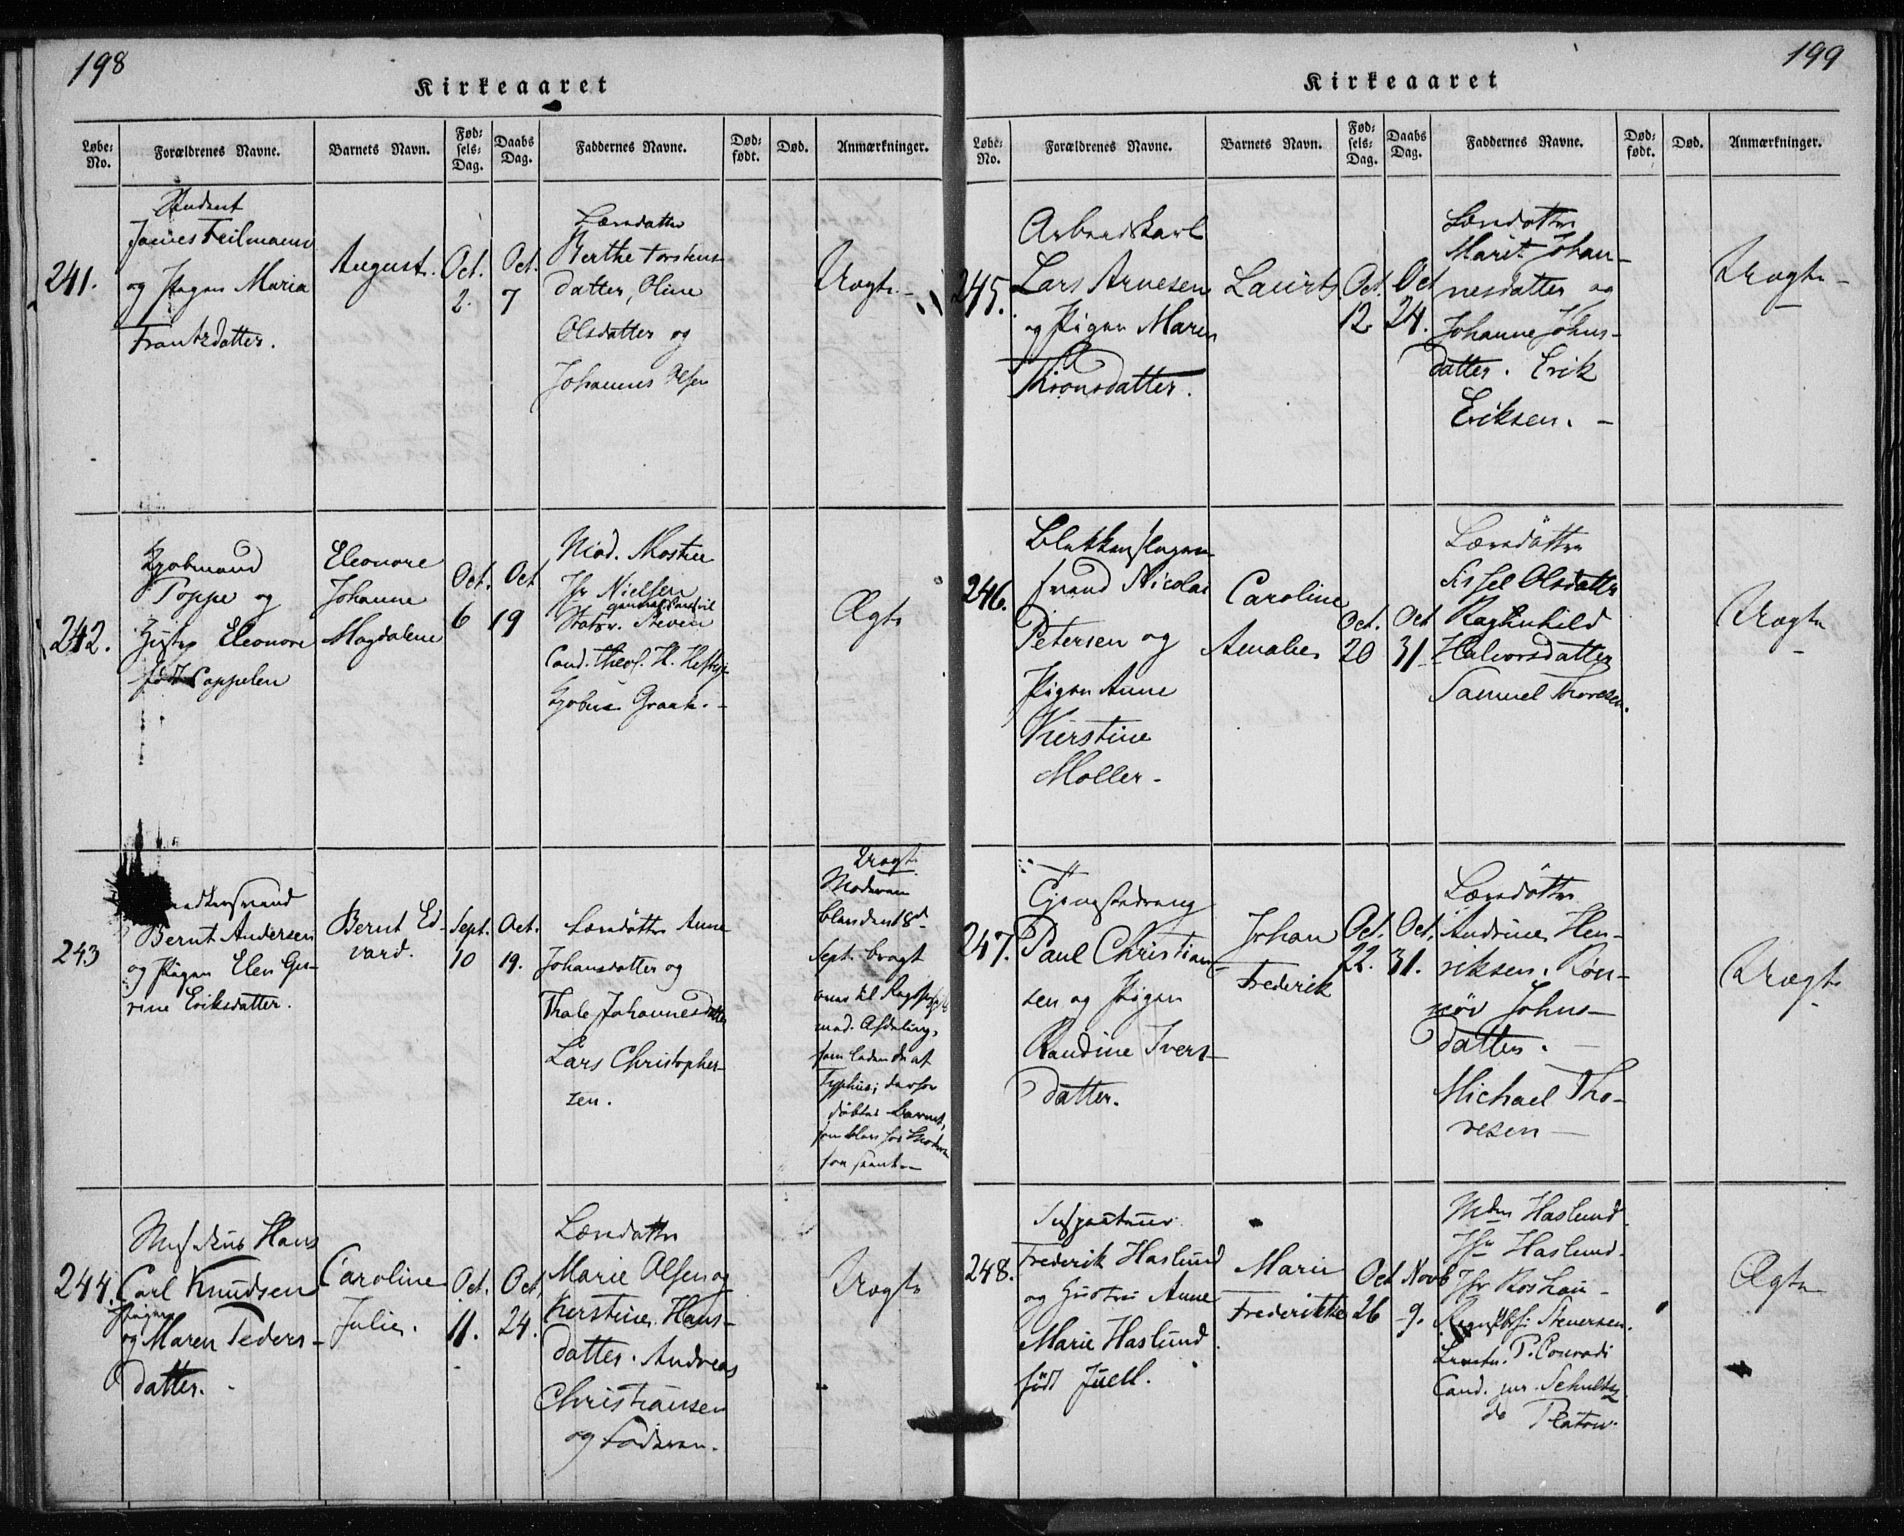 198
Kirkeaaret
Løbe-No. Forældrenes Navne. Barnets Navn. Fødsels-Dag. Daabs Dag. Faddernes Navne. Dødfødt. Død. Anmærkninger.
241.
Student
James Feilmann
og Pigen Maria
Frantzdatter.
August.
Oct.
2.
Oct.
7
Læredatter
Berthe Torstens
datter, Oline
Olsdatter og
Johannes Olsen
Uægte.
242.
Kjøbmand
Poppe og
Hustru Eleonore
født Cappelen
Eleonore
Johanne
Magdalene
Oct.
6
Oct
19
Mad. Moster
Jfr Nielsen
Steven
Cand. theol. H.
Kjøbm. Graah.
Ægte
243
Bernt Andersen
og Pigen Elen Ge-
rine Eriksdatter.
Bernt Ed-
vard.
Sept.
10
Oct.
19.
Anne
Johansdatter og
Thale Johannesdatter
Lars Christopher-
sen.
Uægte
Moderen
blev den 18de
Sept. bragt
med. Afdeling,
som lidende af
Typhus; derfor
døbtes Barnet,
244.
Musikus Hans
Carl Knudsen
Pigen
og Maren Peders-
datter.
Caroline
Julie.
Oct.
11.
Oct.
24.
Marie Olsen og
Kerstine Hans-
datter. Andreas
Christiansen
og Faderen.
Uægte
199
Kirkeaaret
Løbe-No. Forældrenes Navne. Barnets Navn. Fødsels-Dag. Daabs Dag. Faddernes Navne. Dødfødt. Død. Anmærkninger.
245.
Arbeidskarl
Lars Arnesen
og Pigen Maren
Thronsdatter.
Lauritz
Oct.
12.
Oct
24.
Marit Johan-
nesdatter og
Johanne Johns-
datter. Erik
Eriksen.
Uægte
246.
Blikkenslager-
svend Nicolai
Petersen og
Pigen Anne
Kierstine
Møller.
Caroline
Amalie
Oct.
20
Oct
31.
Sissel Olsdatter
Ragnhild
Halvorsdatter
Samuel Thoresen.
Uægte
247.
Tjenestedreng
Paul Christian-
sen og Pigen
Randine Ivers-
datter.
Johan
Frederik
Oct.
22.
Oct.
31.
Andrine Hen-
riksen. Røn-
nøv Johns-
datter.
Michael Tho-
resen
Uægte
248.
Inspecteur
Frederik Haslund
og Hustru Anne
Marie Haslund
født Juell.
Marie
Frederikke
Oct
26
Novb
9.
Mdm Haslund.
Jfr Haslund.
Jfr
Steuersen.
P. Conradi
Cand. jur. Schultz
do Platou.
Ægte